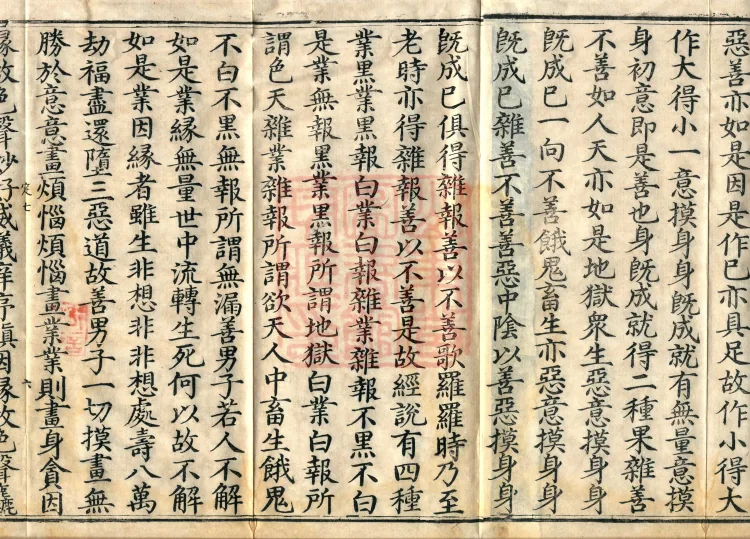 惡善亦如是因是作已亦具足故作小得大
作大得小一意摸身身旣成就有無量意摸
身初意即是善也身旣成就得二種果雜善
不善如人天亦如是地獄衆生惡意摸身身
旣成已一向不善餓鬼畜生亦惡意摸身身
旣成已雜善不善善惡中陰以善惡摸身身
旣成已俱得雜報善以不善歌羅羅時乃至
老時亦得雜報善以不善是故經說有四種
業黑業黑報白業白報雜業雜報不黑不白
是業無報黑業黑報所謂地獄白業白報所
謂色天雜業雜報所謂欲天人中畜生餓鬼
不白不黑無報所謂無漏善男子若人不解
如是業緣無量世中流轉生死何以故不解
如是業因緣者雖生非想非非想處壽八萬
劫福盡還墮三惡道故善男子一切摸畫無
勝於意意畫煩惱煩惱畫業業則畫身貪因
緣故色聲妙好威儀庠序瞋因緣故色聲麤